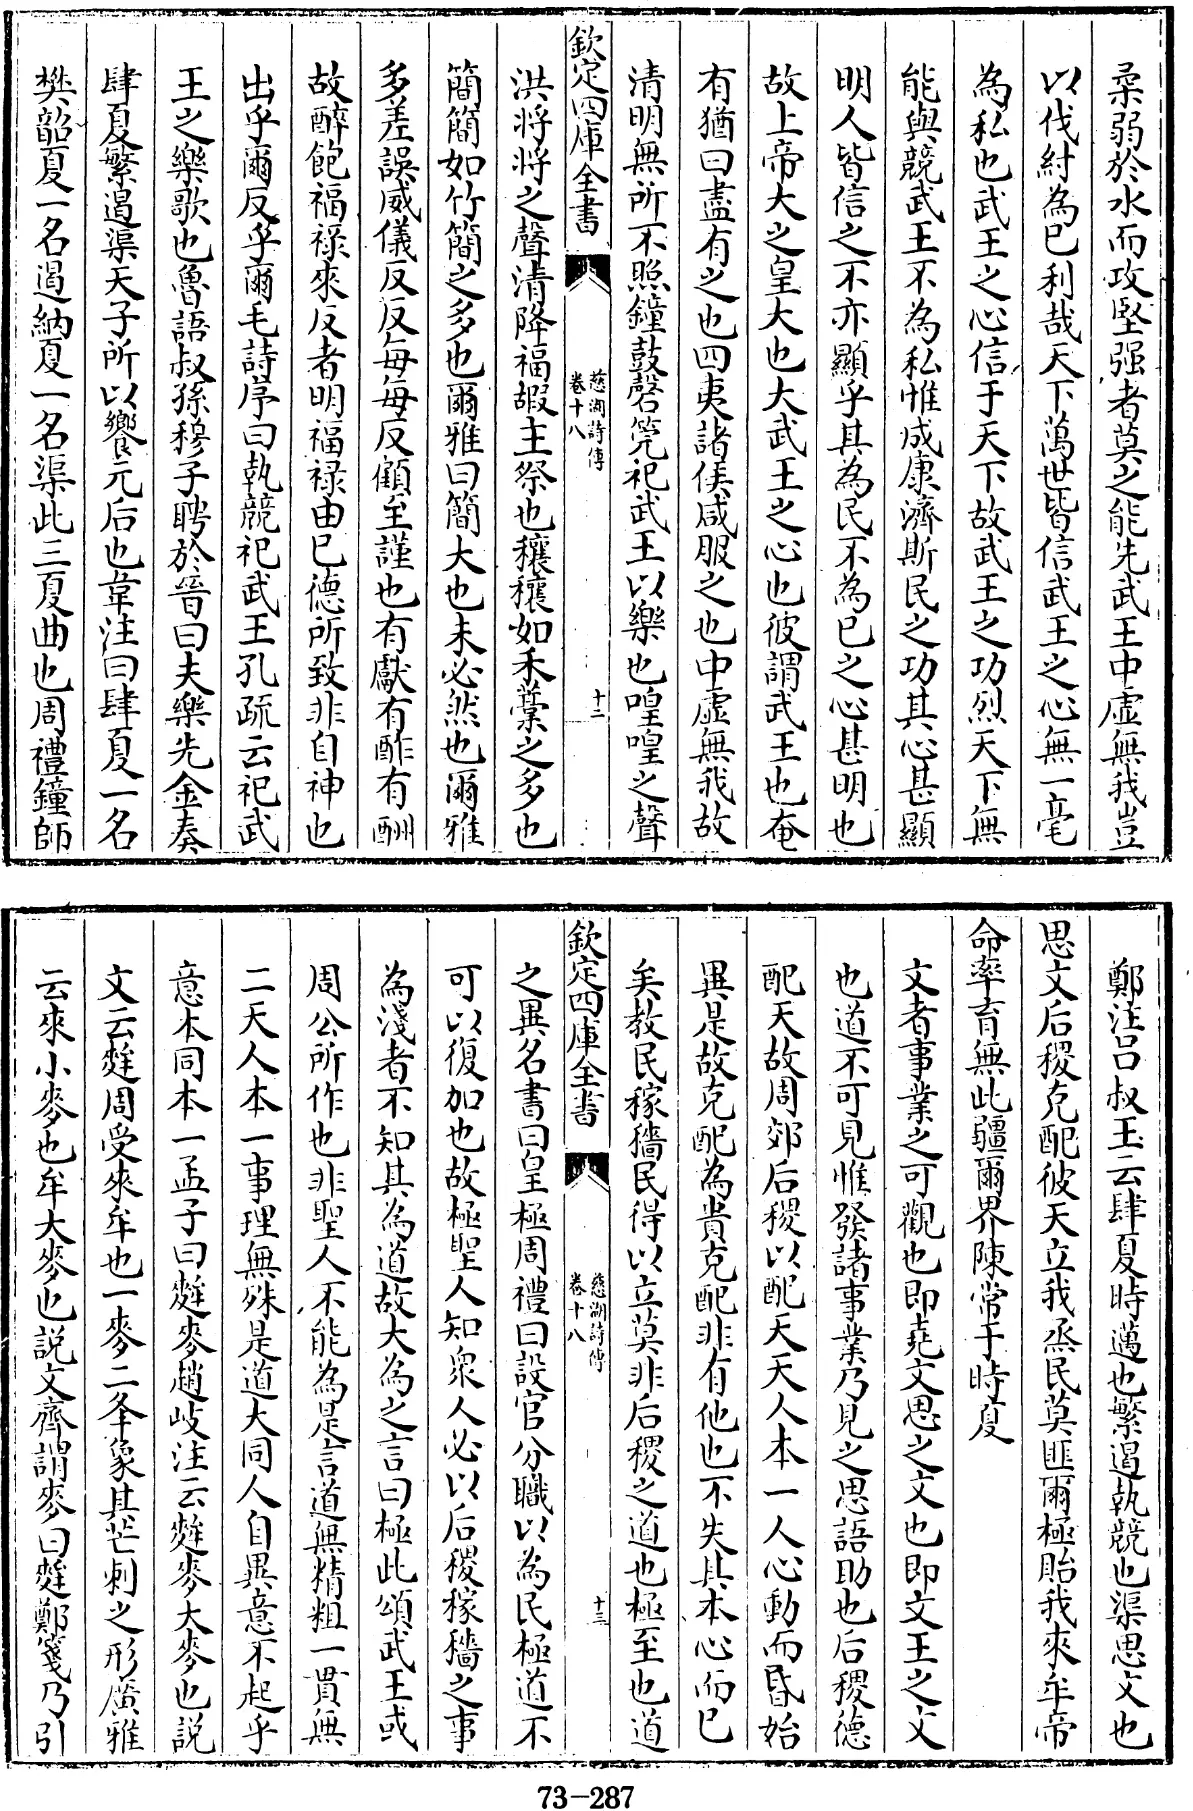 柔弱於水而攻堅强者莫之能先武王中虛無我豈
以伐紂為已利哉天下萬世皆信武王之心無一毫
為私也武王之心信于天下故武王之功烈天下無
能與競武王不為私惟成康濟斯民之功其心甚顯
明人皆信之不亦顯乎其為民不為已之心甚明也
故上帝大之皇大也大武王之心也彼謂武王也奄
有猶曰盡有之也四夷諸侯咸服之也中虛無我故
清明無所不照鐘鼓磬筦祀武王以樂也喤喤之聲
欽定四庫全書
慈湖詩傳
卷十八
十二
洪將將之聲清降福嘏主祭也穰穰如禾藁之多也
簡簡如竹簡之多也爾雅曰簡大也未必然也爾雅
多差誤威儀反反每每反顧至謹也有獻有酢有酬
故醉飽福祿來反者明福祿由已德所致非自神也
出乎爾反乎爾毛詩序曰執競祀武王孔疏云祀武
王之樂歌也魯語叔孫穆子聘於晉曰夫樂先金奏
肆夏繁遏渠天子所以饗元后也韋注曰肆夏一名
樊韶夏一名遏納夏一名渠此三夏曲也周禮鐘師
鄭注呂叔玉云肆夏時邁也繁遏執競也渠思文也
思文后稷克配彼天立我烝民莫匪爾極貽我來牟帝
命率育無此疆爾界陳常于時夏
文者事業之可觀也即堯文思之文也即文王之文
也道不可見惟發諸事業乃見之思語助也后稷德
配天故周郊后稷以配天天人本一人心動而昏始
異是故克配為貴克配非有他也不失其本心而已
矣教民稼穡民得以立莫非后稷之道也極至也道
欽定四庫全書
慈湖詩傳
卷十八
十三
之異名書曰皇極周禮曰設官分職以為民極道不
可以復加也故極聖人知衆人必以后稷稼穡之事
為淺者不知其為道故大為之言曰極此頌武王或
周公所作也非聖人不能為是言道無精粗一貫無
二天人本一事理無殊是道大同人自異意不起乎
意本同本一孟子曰麰麥趙岐注云麰麥大麥也說
文云麰周受來牟也一麥二夆象其芒刺之形廣雅
云來小麥也牟大麥也說文齊謂麥曰麳鄭箋乃引
73-287